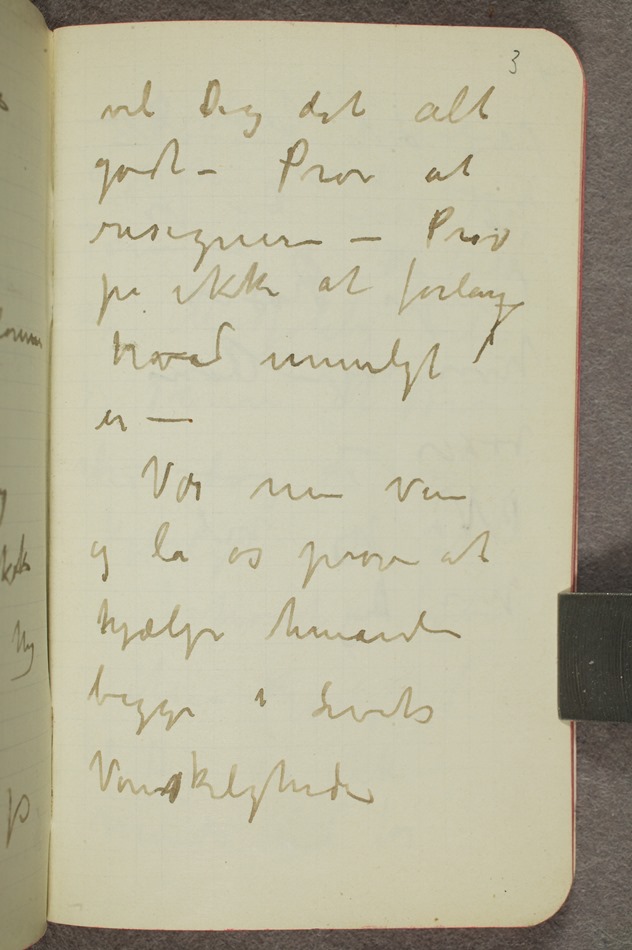 3
vel Dig det alt
godt – Prøv at
resignere – Prøv
på ikke at forlang
hvad umuligt
er –
Vær min ven
og la os prøve at
hjælpe hinanden
begge i Livets
Vanskeligheder